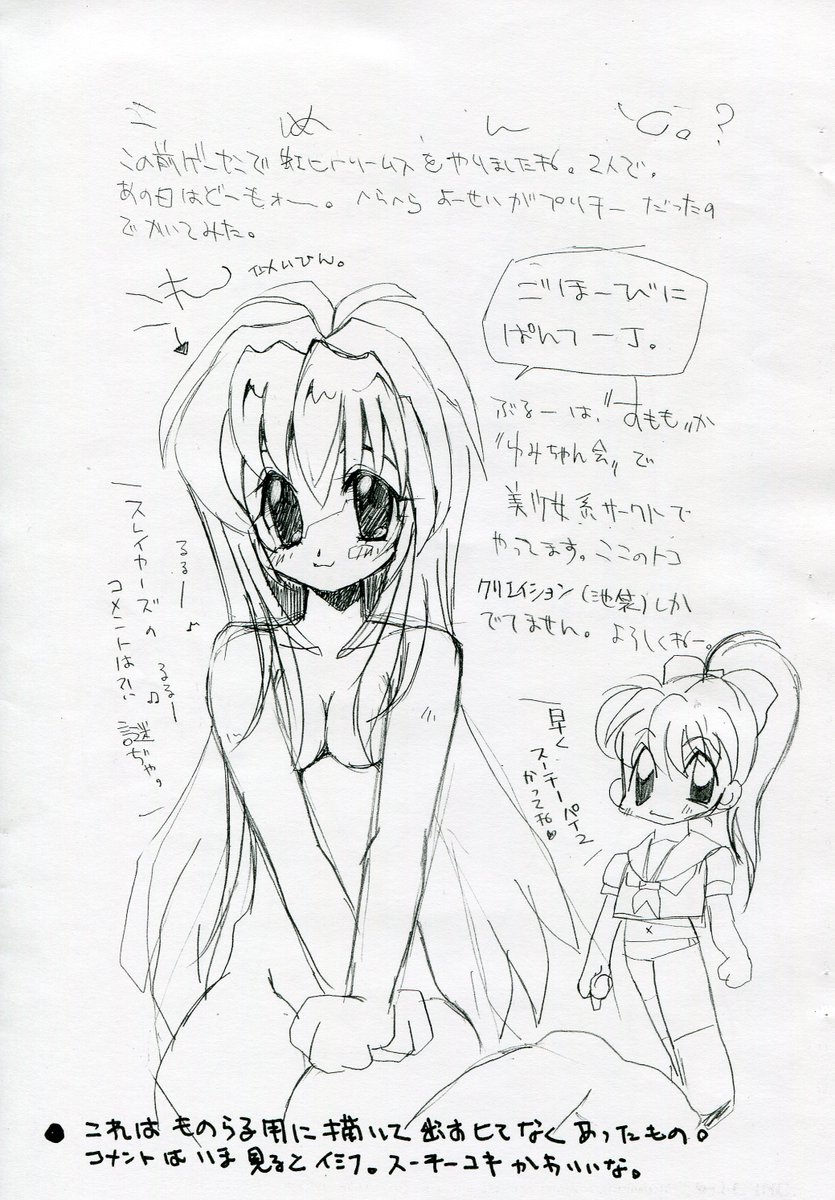 ごめんじ。?
この前ゲーセンで虹ヒトリームスをやりましたね。2人で。
あの日はどーもォー。へらへら よーせいがプリチー だったの
でかいてみた。
ごほーびに
ぱんてー丁。
ぶるーは、"すもも"か
"ゆみちゃん会"で
美少女系サークルで
やってます。ここのトコ
クリエイション(池袋)しか
でてません。よろしくねー。
るるー♪
るるー♫
スレイヤーズの
コメントはてい
謎ぢゃ。
早く
スーチーパイ2
かってね♡
● これは ものらる用に描いて 出すヒてなく あったもの。
コメントは いま 見ると イミフ。スーチーユキ かわいいな。